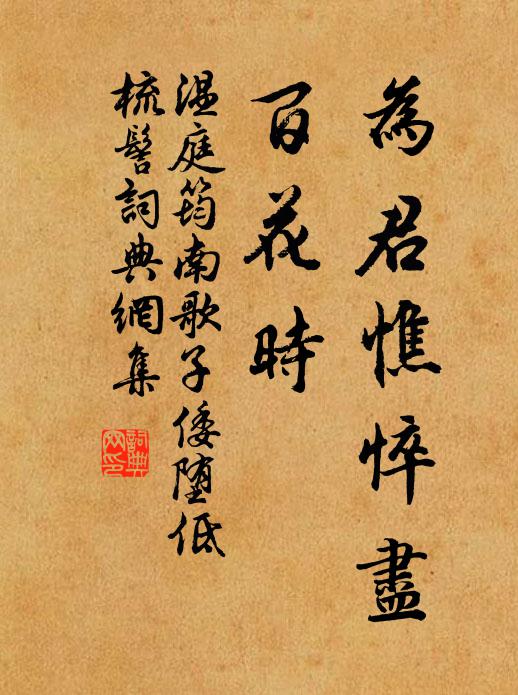 為君憔悴盡
百花時
温庭筠南歌子倭堕低
梳髻詞典網集
詞典网印